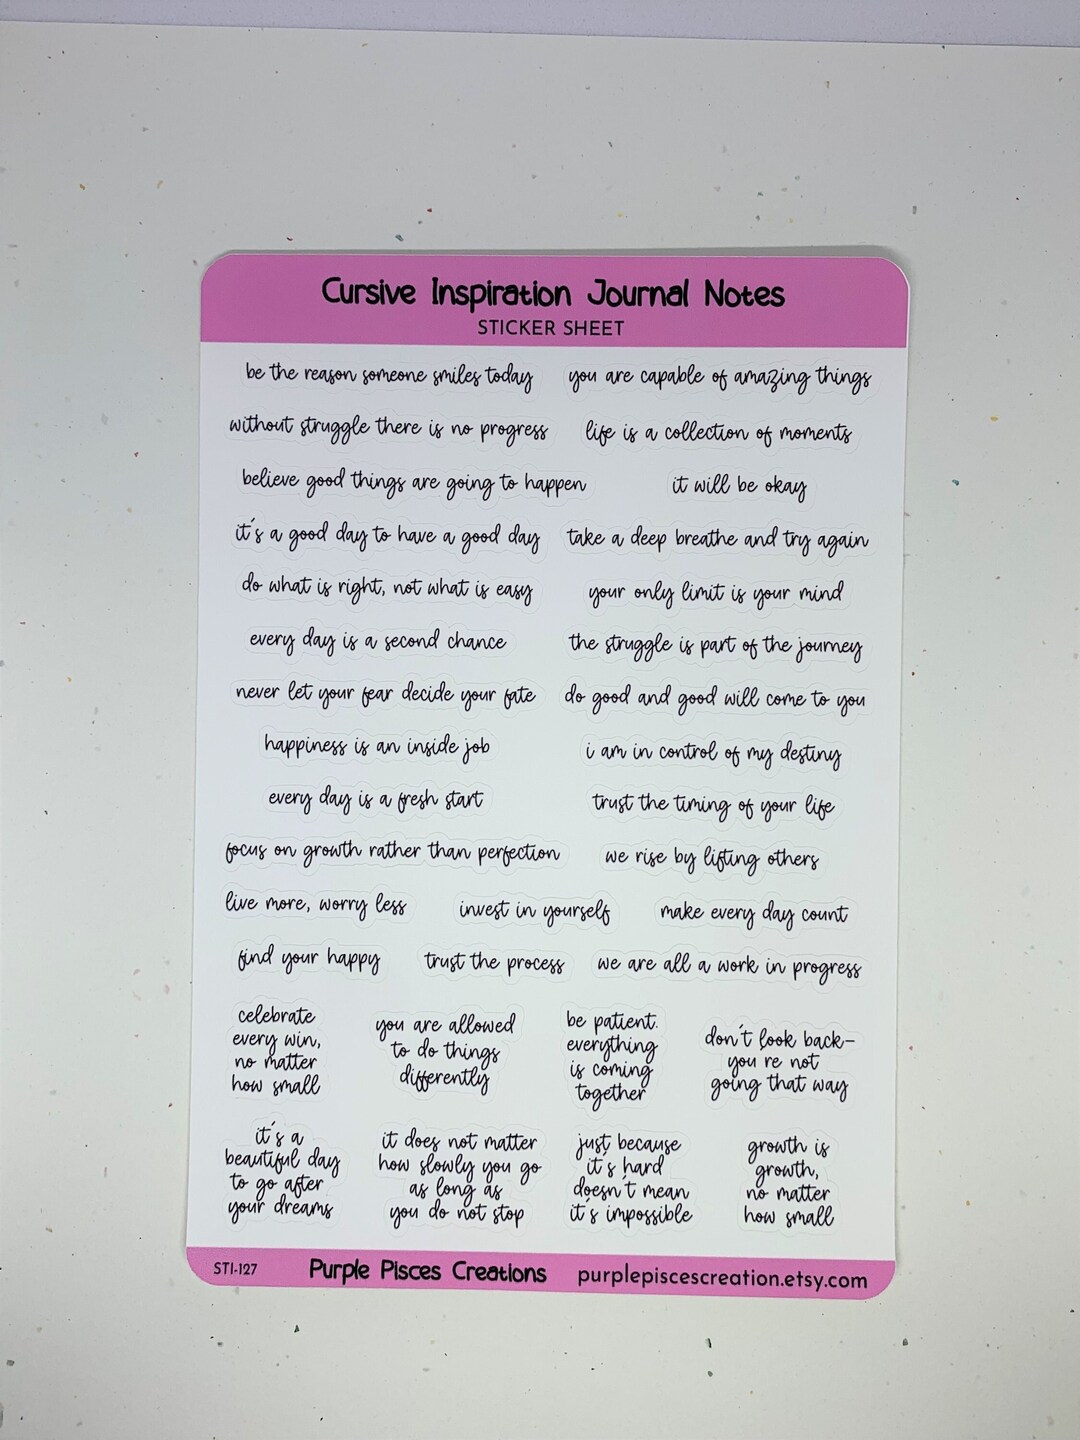 Cursive Inspiration Journal Notes
STICKER SHEET
be the reason someone smiles today
you are capable of amazing things
without struggle there is no progress
life is a collection of moments
believe good things are going to happen
it will be okay
it's a good day to have a good day
take a deep breathe and try again
do what is right, not what is easy
your only limit is your mind
every day is a second chance
the struggle is part of the journey
never let your fear decide your fate
do good and good will come to you
happiness is an inside job
i am in control of my destiny
every day is a fresh start
trust the timing of your life
focus on growth rather than perfection
we rise by lifting others
live more, worry less
invest in yourself
make every day count
find your happy
trust the process
we are all a work in progress
celebrate
every win,
no matter
how small
you are allowed
to do things
differently
be patient.
everything
is coming
together
don't look back-
you re not
going that way
it's a
beautiful day
to go after
your dreams
it does not matter
how slowly you go
as long as
you do not stop
just because
it's hard
doesn't mean
it's impossible
growth is
growth,
no matter
how small
STI-127
Purple Pisces Creations
purplepiscescreation.etsy.com